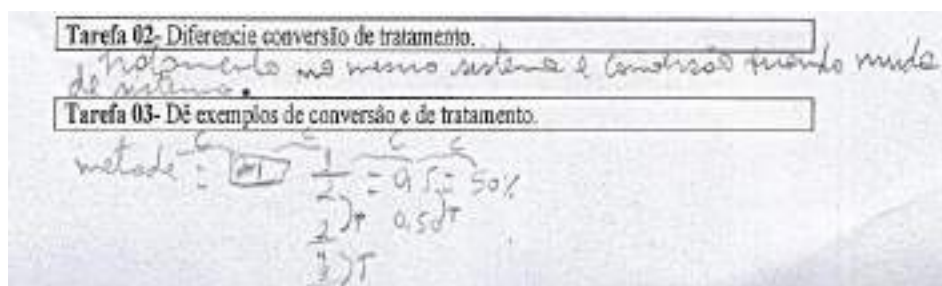 Tarefa 02- Diferencie conversão de tratamento.
tratamento no mesmo sistema e conversão quando muda
de sistema.
Tarefa 03- Dê exemplos de conversão e de tratamento.
C C C C
metade = 1/2 = 0,5 = 50%
2 )T 0,50 )T
)T